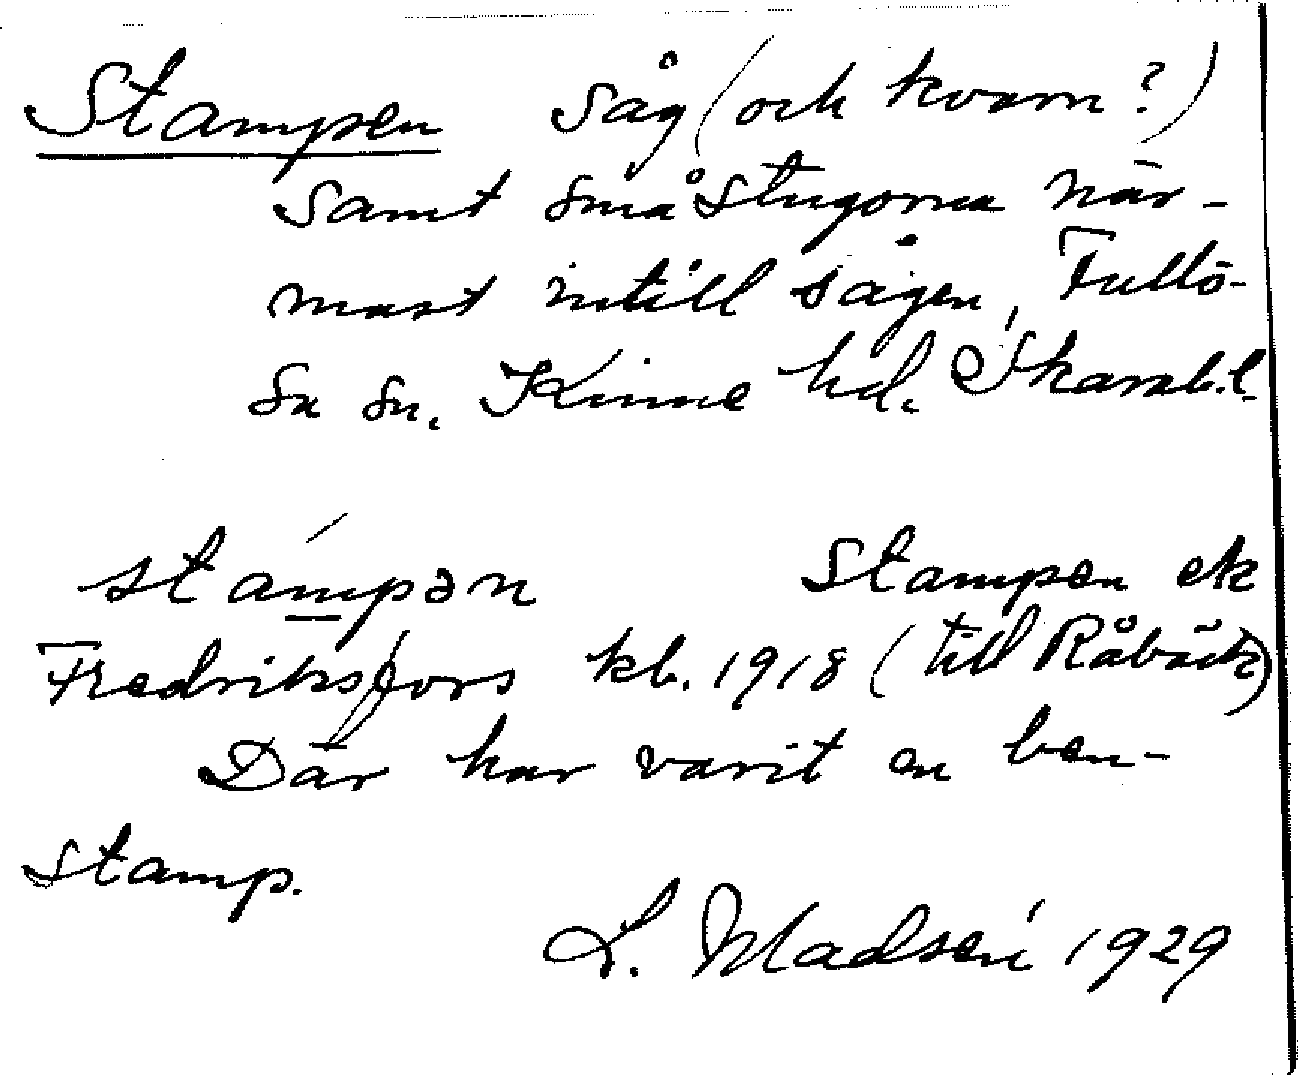 Stampen Såg (och kvarn?)
samt småstugorna när-
mast intill sågen, Fullö-
sa sn. Kinne hd. Skarab.l.
stámpən Stampen ek
Fredriksfors kb. 1918 (till Råbäck)
Där har varit en ben-
stamp.
L. Madsén 1929